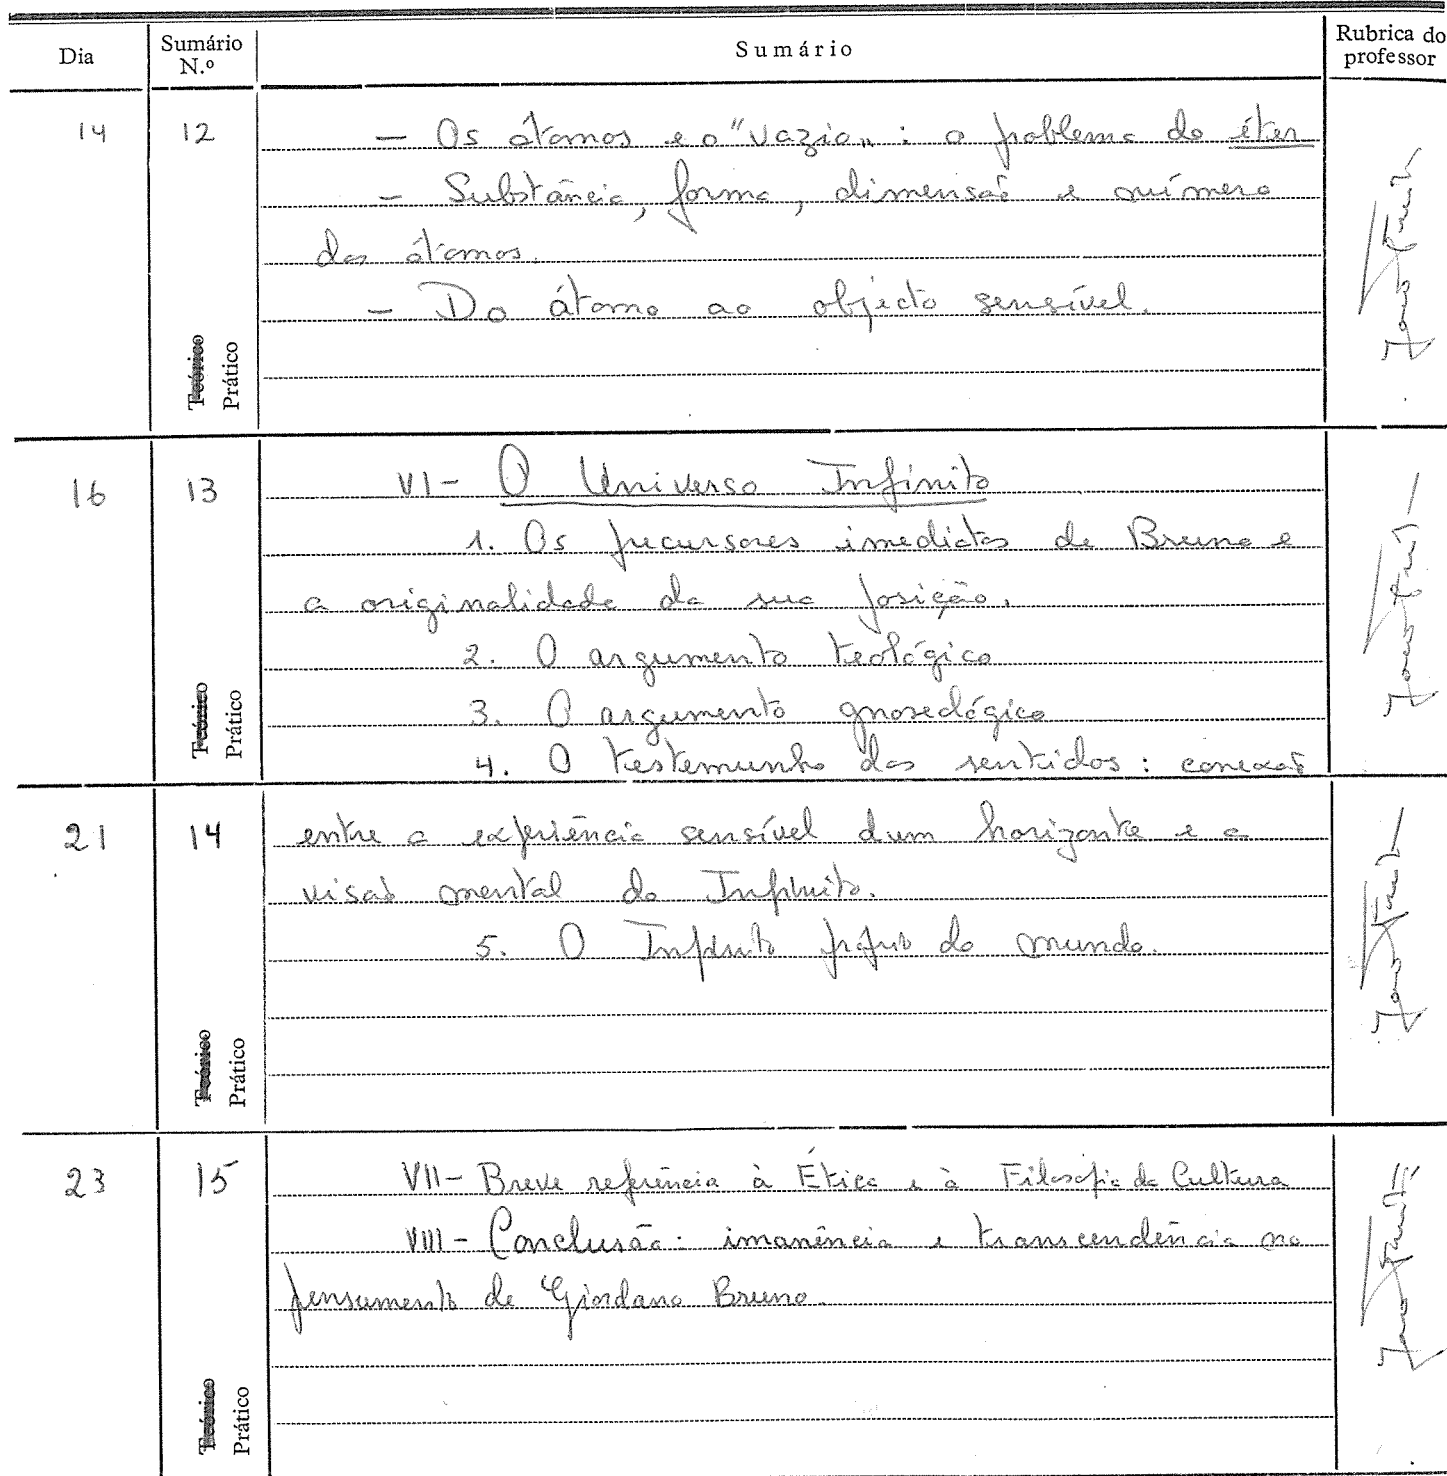 Dia Sumário N.º Sumário Rubrica do professor
14 12 — Os átomos e o "vazio": o problema do éter
— Substância, forma, dimensão e número
dos átomos.
— Do átomo ao objecto sensível.
Teórico
Prático
16 13 VI - O Universo Infinito
1. Os precursores imediatos de Bruno e
a originalidade da sua posição.
2. O argumento teológico
3. O argumento gnoseológico
4. O testemunho dos sentidos: conexão
Teórico
Prático
21 14 entre a experiência sensível dum horizonte e a
visão mental do Infinito.
5. O Infinito próprio do mundo.
Teórico
Prático
23 15 VII - Breve referência à Ética e à Filosofia da Cultura
VIII - Conclusão: imanência e transcendência no
pensamento de Giordano Bruno.
Teórico
Prático